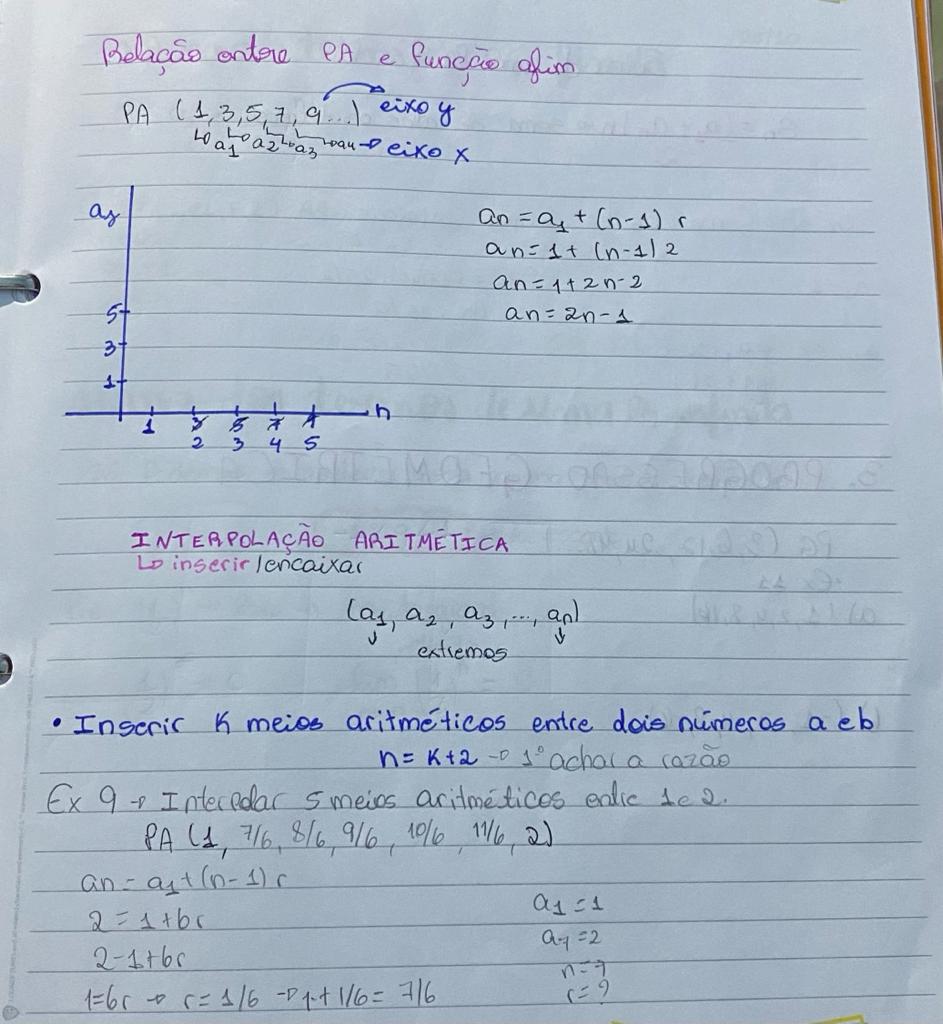 Relação entre PA e função afim
PA (1, 3, 5, 7, 9...) eixo y
a1 a2 a3 a4 → eixo x
an = a1 + (n-1) r
an = 1 + (n-1) 2
an = 1 + 2n - 2
an = 2n - 1
5
3
1
n
1
2 3 4 5
INTERPOLAÇÃO ARITMÉTICA
↳ inserir/encaixar
(a1, a2, a3, ..., an)
↓ ↓
extremos
• Inserir K meios aritméticos entre dois números a e b
n = K+2 → 1° achar a razão
Ex 9 → Interpolar 5 meios aritméticos entre 1 e 2.
PA (1, 7/6, 8/6, 9/6, 10/6, 11/6, 2)
an = a1 + (n-1) r
2 = 1 + 6r
2-1+6r
1=6r → r = 1/6 → 1+1/6 = 7/6
a1 = 1
a7 = 2
n = 7
r = ?